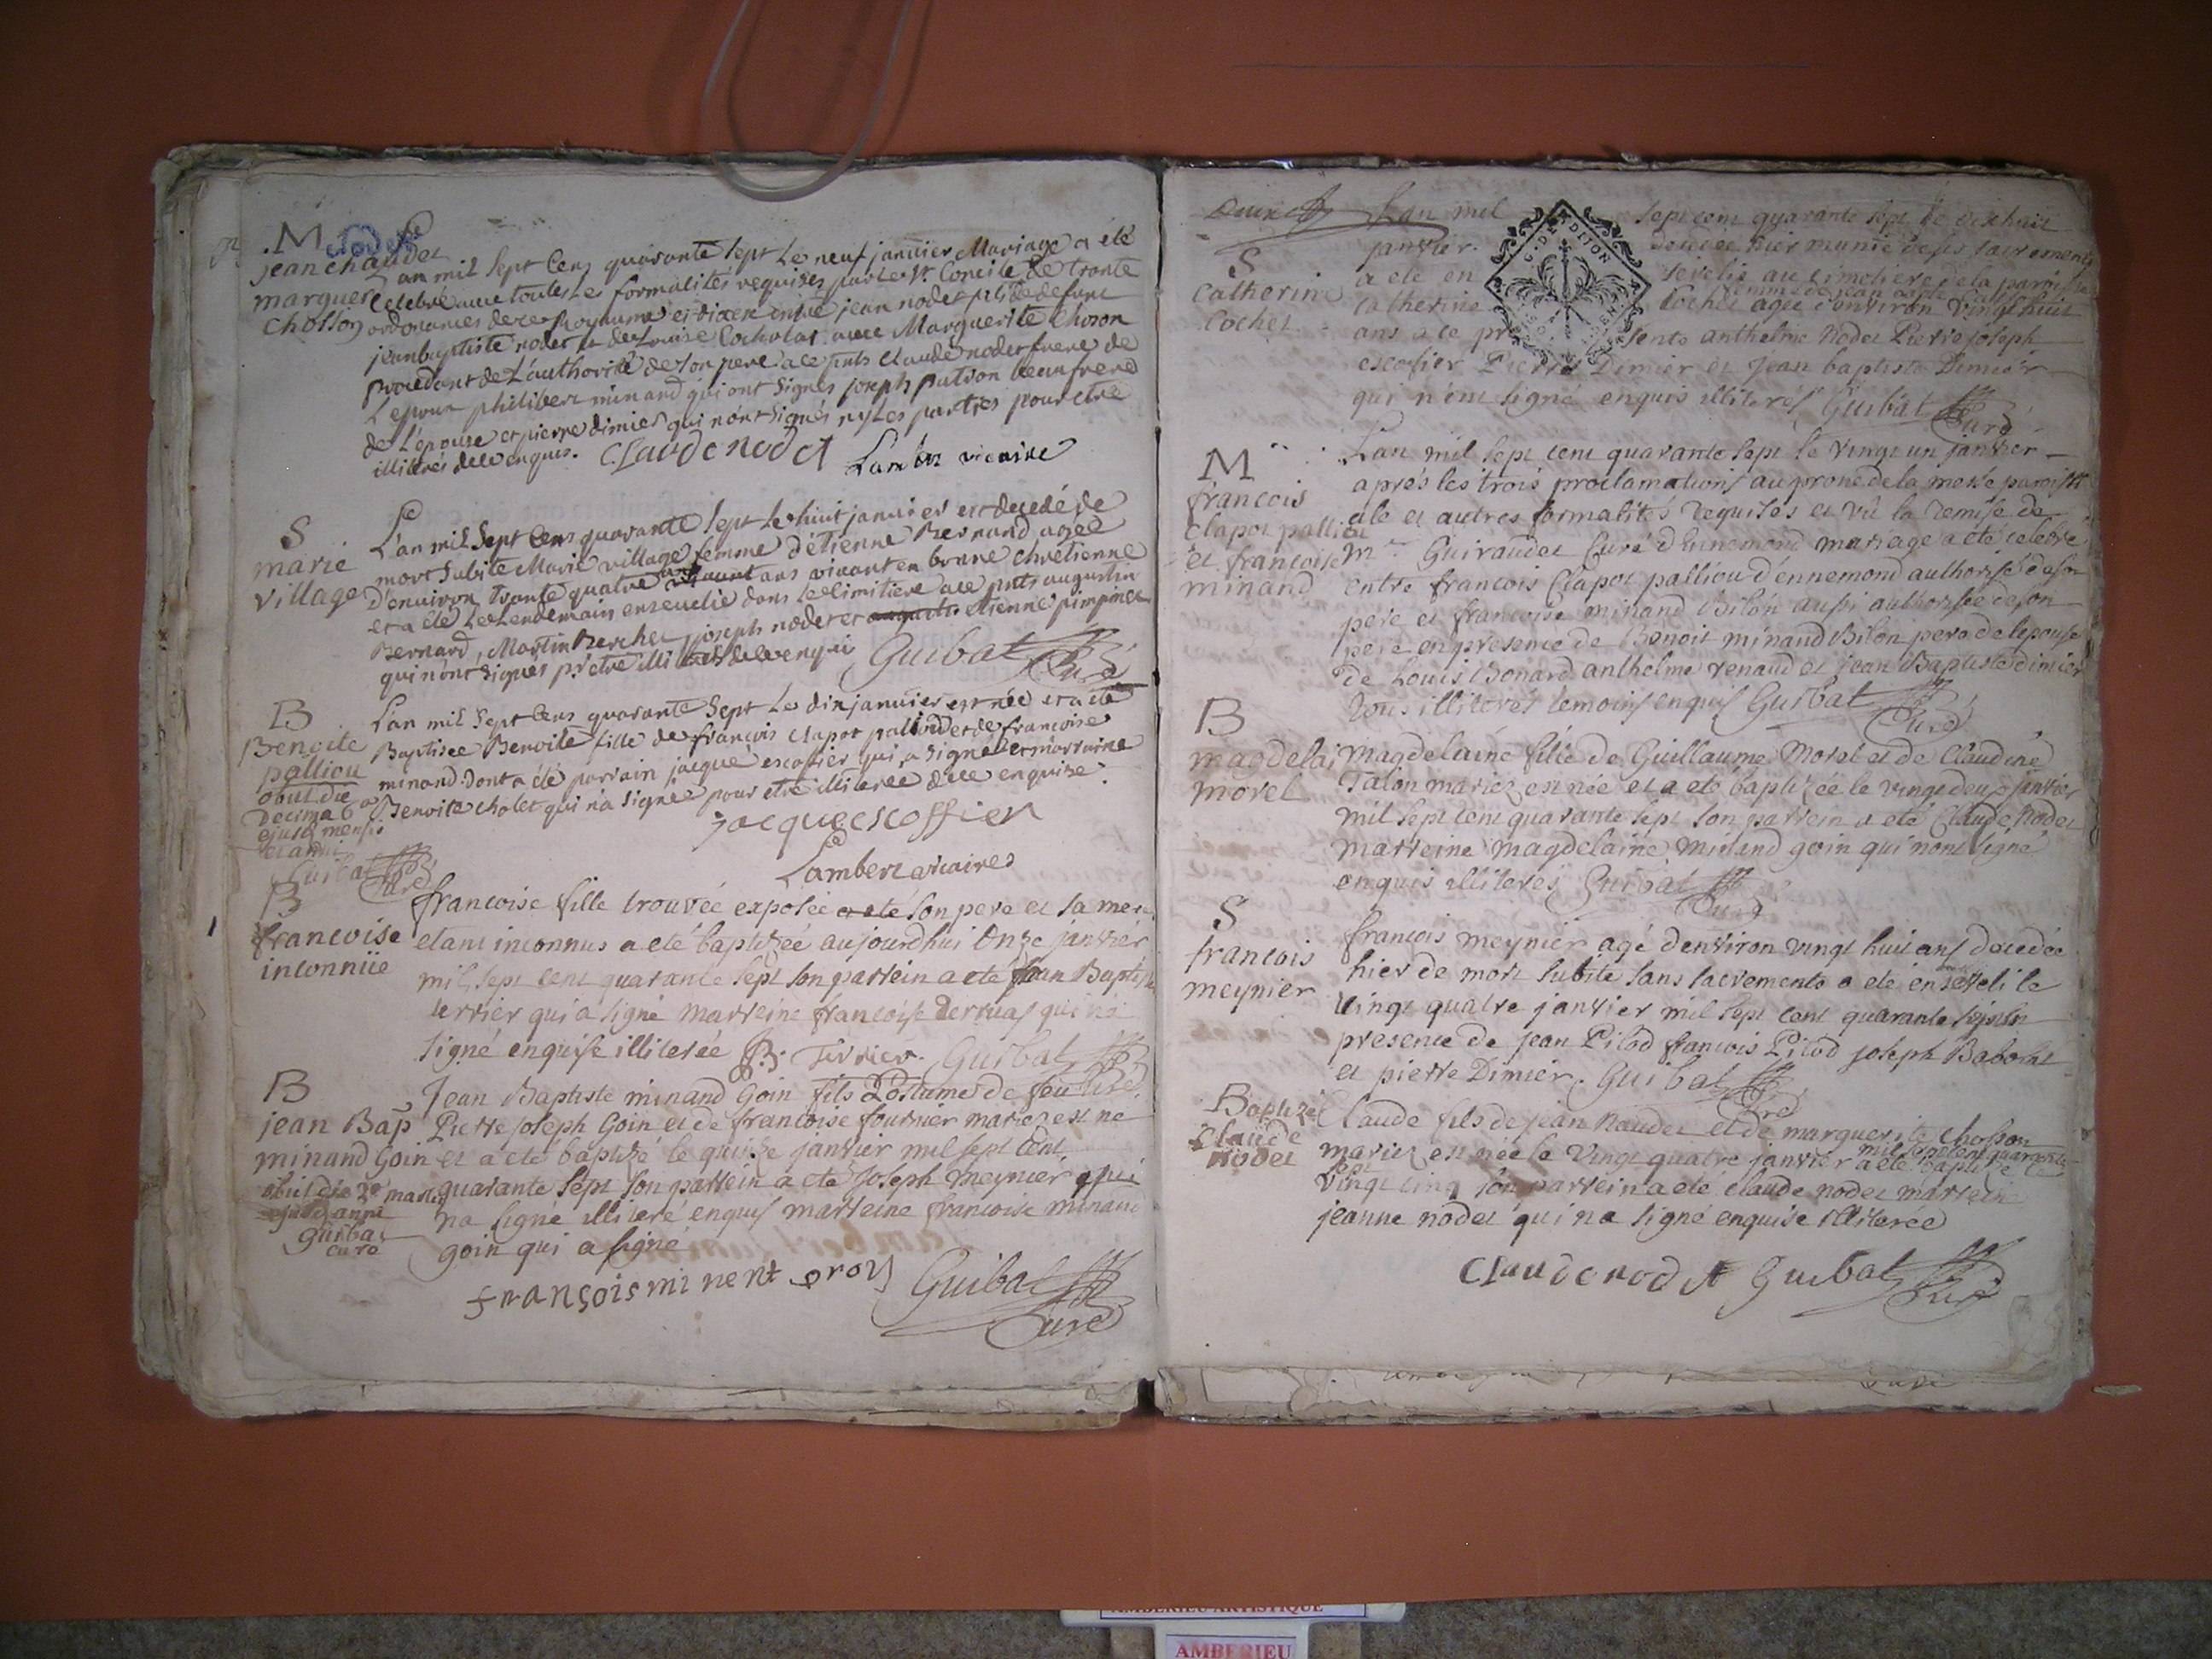 M
jean chaudet
marguerite
Chosson
L'an mil sept Cens quarante sept Le neuf janvier Mariage a été
Celebré avec toutes Les formalités requises par Le St. Concile de trente
ordonances de ce Royaume et diocese entre jean nodet fils de defunt
jean baptiste nodet et de Louise Cocholat avec Marguerite Choson
procedant de L'authorité de son pere a ce pnts claude nodet frere de
L'epoux philibert minand qui ont signés joseph beaufrere
de L'epouse et pierre dimier qui n'ont signés ny Les parties pour etre
illiterés de ce enquis. CLaudenodet Lambert vicaire
S
marie
village
L'an mil Sept Cens quarante Sept Le huit janvier est decedé de
mort Subite Marie village femme d'étienne Bernand agée
d'environ trante quatre ans vivant en bonne chretienne
et a été Le Lendemain ensevelie dans Le cimitiere a ce pnts augustin
Bernard, Martin Bercher joseph nodet et etienne pimpinet
qui n'ont signés pr etre illiterés de ce enquis Guibat Curé
B
Benoite
palliou
obiit die
decima 6a
ejusd mensis
et anni
Guibat Curé
L'an mil Sept Cens quarante Sept Le dix janvier est née et a été
Baptisée Benoite fille de françois clapot palliou et de françoise
minand. Dont a été parrain jacque escoffier qui a signé et marraine
Benoite cholet qui n'a signée pour etre illiterée de ce enquise.
jacque escoffier
Lambert vicaire
B
francoise
inconnüe
francoise fille trouvée exposée a eté son pere et sa mere
etant inconnus a eté baptizée aujourdhui Onze janvier
mil sept cent quarante sept son parrein a eté jean Baptiste
terrier qui a signé marreine francoise qui n'a
signé enquise illiterée B. Terrier. Guibat Curé
B
jean Bap
minand Goin
obiit die 2a martii
ejusd anni
Guibat
curé
Jean Baptiste minand Goin fils Postume de feu
Pierre joseph Goin et de francoise fournier mariez est né
et a eté baptizé le quinze janvier mil sept cent
quarante sept son parrein a eté Joseph meynier qui
na signé illiteré enquis marreine francoise minand
goin qui a signé
françois minent Guibat Curé
S
Catherine
Cochet
L'an mil sept cent quarante sept le dixhuit
janvier. decedée hier munie de ses sacrements
a eté en sevelie au cimetiere de la paroisse
Catherine Cochet agée d'environ vingt huit
ans a ce pre sents anthelme Nodet Pierre joseph
escofier Pierre Dimier et Jean baptiste Dimier
qui n'ont signé enquis illiterés Guibat Curé
M
francois
Clapot palliou
et francoise
minand
L'an mil sept cent quarante sept le vingt un janvier
aprés les trois proclamations au prone de la messe paroissi
ale et autres formalités requises et vû la remise de
Mre Guiraudet Curé d'Ennemond mariage a eté celebré
entre francois Clapot palliou d'ennemond authorisé de son
pere et francoise minand Bilon aussi authorisée de son
pere en presence de Benoit minand Bilon pere de lepouse
de Louis Bonard anthelme renaud et jean Baptiste dimier
tous illiterés temoins enquis Guibat Curé
B
magdelai
morel
magdelaine fille de Guillaume Morel et de Claudine
Talon mariez est née et a eté baptizée le vingt deux janvier
mil sept cent quarante sept son parrein a eté Claude Nodet
marreine magdelaine minand goin qui n'ont signé
enquis illiteres Guibat Curé
S
francois
meynier
francois meynier agé denviron vingt huit ans decedée
hier de mort subite sans sacrements a eté enseveli le
vingt quatre janvier mil sept cent quarante sept en
presence de jean Pilod francois Pilod joseph Babolat
et pierre Dimier. Guibat Curé
Baptizé
Claude
nodet
Claude fils de jean Naudet et de marguerite chosson
mariez est née le vingt quatre janvier mil sept cent quarante
sept a eté baptizé le
vingt cinq son parrein a eté claude nodet marreine
jeanne nodet qui n a signé enquise illiterée
CLaudenodet Guibat Curé
G. D'EDITON
AMBERIEU ARTISTIQUE
AMBERIEU